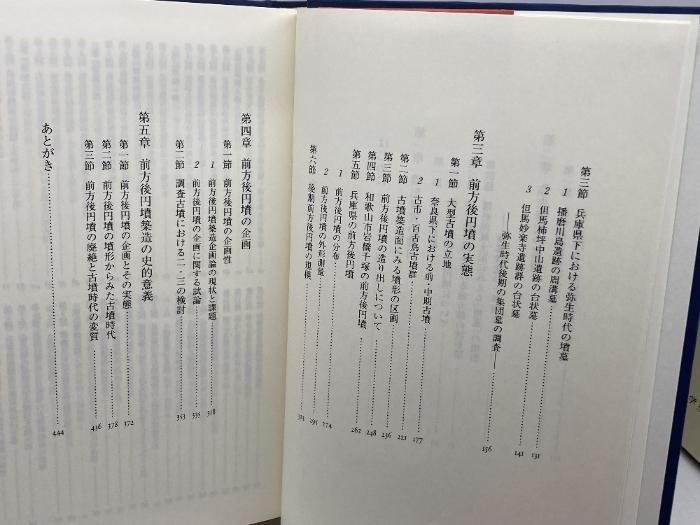 第三節　兵庫県下における弥生時代の墳墓
1　播磨川島遺跡の周溝墓…………131
2　但馬柿坪中山遺跡の台状墓…………141
3　但馬妙楽寺遺跡群の台状墓
――弥生時代後期の集団墓の調査――…………156
第三章　前方後円墳の実態
第一節　大型古墳の立地
1　奈良県下における前・中期古墳…………177
2　古市・百舌鳥古墳群…………221
第二節　古墳築造面にみる墳形の区画…………236
第三節　前方後円墳の造り出しについて…………248
第四節　和歌山市岩橋千塚の前方後円墳…………262
第五節　兵庫県の前方後円墳
1　前方後円墳の分布…………274
2　前方後円墳の外形測量…………295
第六節　後期前方後円墳の規模…………311
第四章　前方後円墳の企画
第一節　前方後円墳の企画性
1　前方後円墳築造企画論の現状と課題…………318
2　前方後円墳の企画に関する試論…………335
第二節　調査古墳における二・三の検討…………353
第五章　前方後円墳築造の史的意義
第一節　前方後円墳の企画とその実態…………372
第二節　前方後円墳の墳形からみた古墳時代…………378
第三節　前方後円墳の廃絶と古墳時代の変質…………436
あとがき…………444